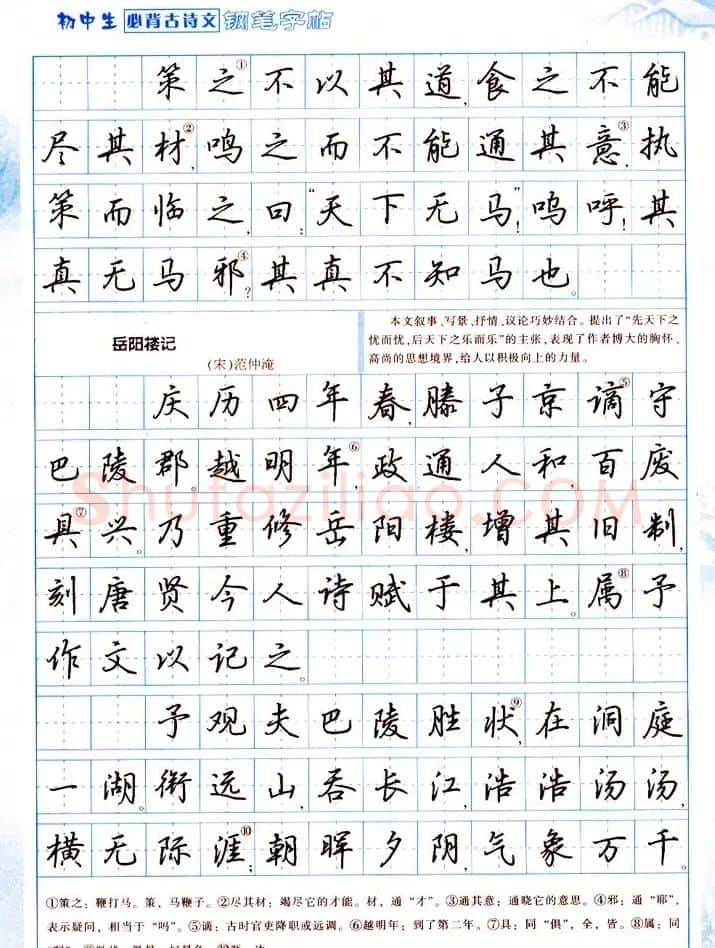 初中生 必背古诗文 钢笔字帖
策之①不以其道，食之不能
尽其材②，鸣之而不能通其意③，执
策而临之，曰：“天下无马！”呜呼！其
真无马邪④？其真不知马也。
岳阳楼记
(宋)范仲淹
本文叙事、写景、抒情、议论巧妙结合。提出了“先天下之
忧而忧，后天下之乐而乐”的主张，表现了作者博大的胸怀、
高尚的思想境界，给人以积极向上的力量。
庆历四年春，滕子京谪⑤守
巴陵郡。越明年⑥，政通人和，百废
具⑦兴。乃重修岳阳楼，增其旧制，
刻唐贤今人诗赋于其上。属⑧予
作文以记之。
予观夫巴陵胜状⑨，在洞庭
一湖。衔远山，吞长江，浩浩汤汤，
横无际涯⑩；朝晖夕阴，气象万千
shufaziliao.COM
①策之：鞭打马。策、马鞭子。②尽其材：竭尽它的才能。材，通“才”。③通其意：通晓它的意思。④邪：通“耶”，
表示疑问，相当于“吗”。⑤谪：古时官吏降职或远调。⑥越明年：到了第二年。⑦具：同“俱”，全，皆。⑧属：同